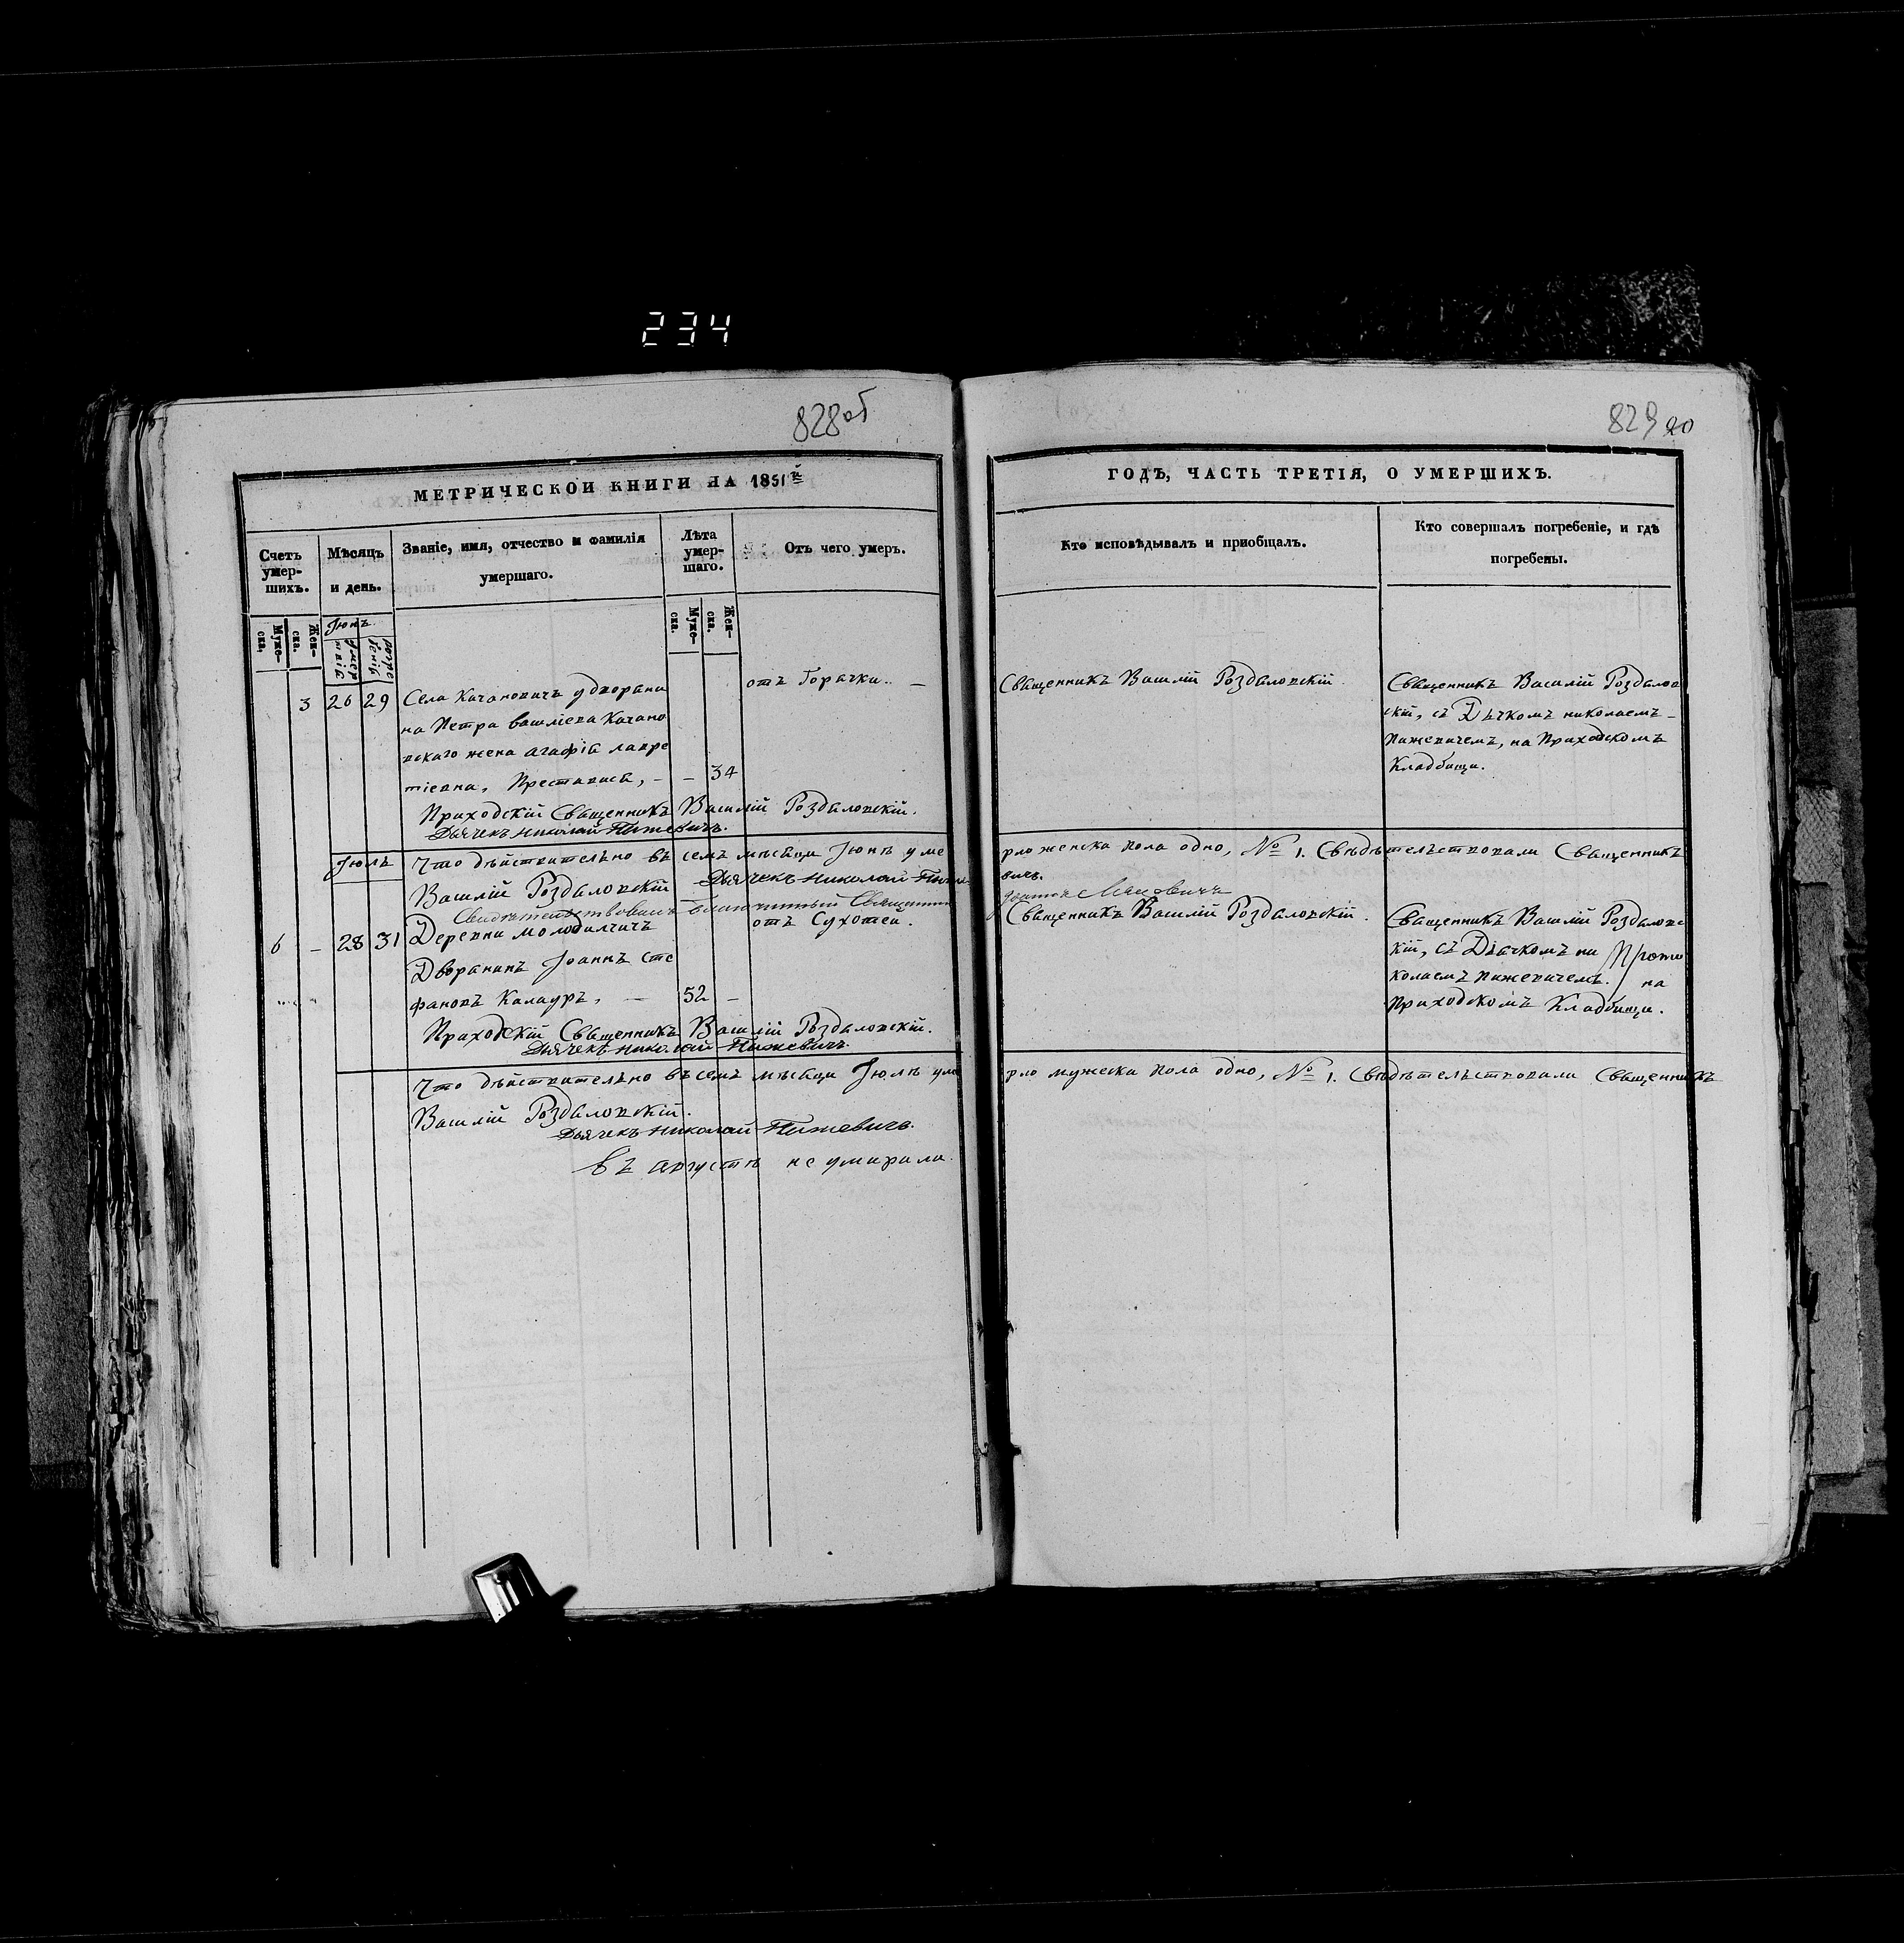 234
828об
829 20
МЕТРИЧЕСКОЙ КНИГИ НА 1851й
ГОДЪ, ЧАСТЬ ТРЕТІЯ, О УМЕРШИХЪ.
Счетъ умер-шихъ.
Мѣсяцъ и день.
Званіе, имя, отчество и фамилія
умершаго.
Лѣта умер-шаго.
Отъ чего умеръ.
Кто исповѣдывалъ и приобщалъ.
Кто совершалъ погребеніе, и гдѣ
погребены.
Муже-ска.
Жен-ска.
Іюнь
Муже-ска.
Жен-ска.
3 26 29 Села Качановичъ у дворяни
на Петра Василіева Качано
вскаго жена Агафія Лавре
тіевна, Преставися, - - 34
отъ Горачки. -
Священникъ Василій Роздаловскій
Священникъ Василій Роздалов
скій, съ Дячкомъ Николаемъ
Пажевичемъ, на Приходскомъ
Кладбищи.
Приходскій Священникъ Василій Роздаловскій.
Дьячекъ Николай Пажевичъ.
Іюль
Что дѣйствительно въ семъ мѣсяци Іюнѣ уме
рло женска пола одно, № 1. Свѣдѣтельствовали Священникъ
Василій Роздаловскій Дьячекъ Николай Паже
вичъ.
Свидѣтельствовалъ благочинный Священник
6 - 28 31 Деревни Молодилчичъ
Дворанинъ Іоаннъ Сте
фановъ Калауръ, - 52 -
отъ Сухотей.
Священникъ Василій Роздаловскій.
Священникъ Василій Роздаловс
кій, съ Діачкомъ Ни
колаемъ Пажевичемъ. на
Приходскомъ Кладбищи.
Приходскій Священникъ Василій Роздаловскій.
Дьячекъ Николай Пажевичъ.
Что дѣйствительно въ семъ мѣсяци Іюлѣ уме
рло мужеска пола одно, № 1. Свѣдѣтельствовали Священникъ
Василій Роздаловскій.
Дьячекъ Николай Пажевичъ.
въ августѣ не умирали.